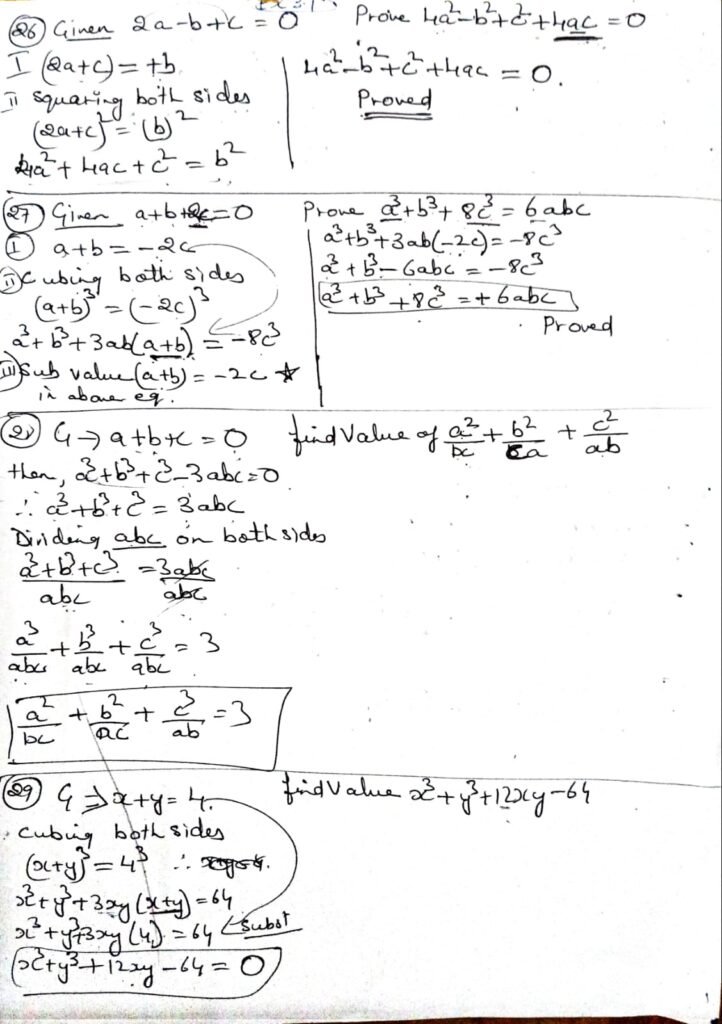 26 Given 2a-b+c = 0 Prove 4a²-b²+c²+4ac = 0
I (2a+c) = +b
II squaring both sides
(2a+c)² = (b)²
4a² + 4ac + c² = b²
4a²-b²+c²+4ac = 0.
Proved
27 Given a+b+2c=0 Prove a³+b³+8c³ = 6abc
I a+b = -2c
II Cubing both sides
(a+b)³ = (-2c)³
a³+b³+3ab(a+b) = -8c³
III Sub value (a+b) = -2c ☆
in above eq.
a³+b³+3ab(-2c) = -8c³
a³+b³-6abc = -8c³
a³+b³+8c³ = +6abc
Proved
28 G → a+b+c = 0 find Value of a²/bc + b²/ca + c²/ab
then, a³+b³+c³-3abc=0
∴ a³+b³+c³ = 3abc
Dividing abc on both sides
a³+b³+c³/abc = 3abc/abc
a³/abc + b³/abc + c³/abc = 3
a²/bc + b²/ac + c³/ab = 3
29 G ⇒ x+y = 4. find Value x³+y³+12xy-64
Cubing both sides
(x+y)³ = 4³ ∴
x³+y³+3xy(x+y) = 64
x³+y³+3xy(4) = 64 Subst
x³+y³+12xy-64 = 0